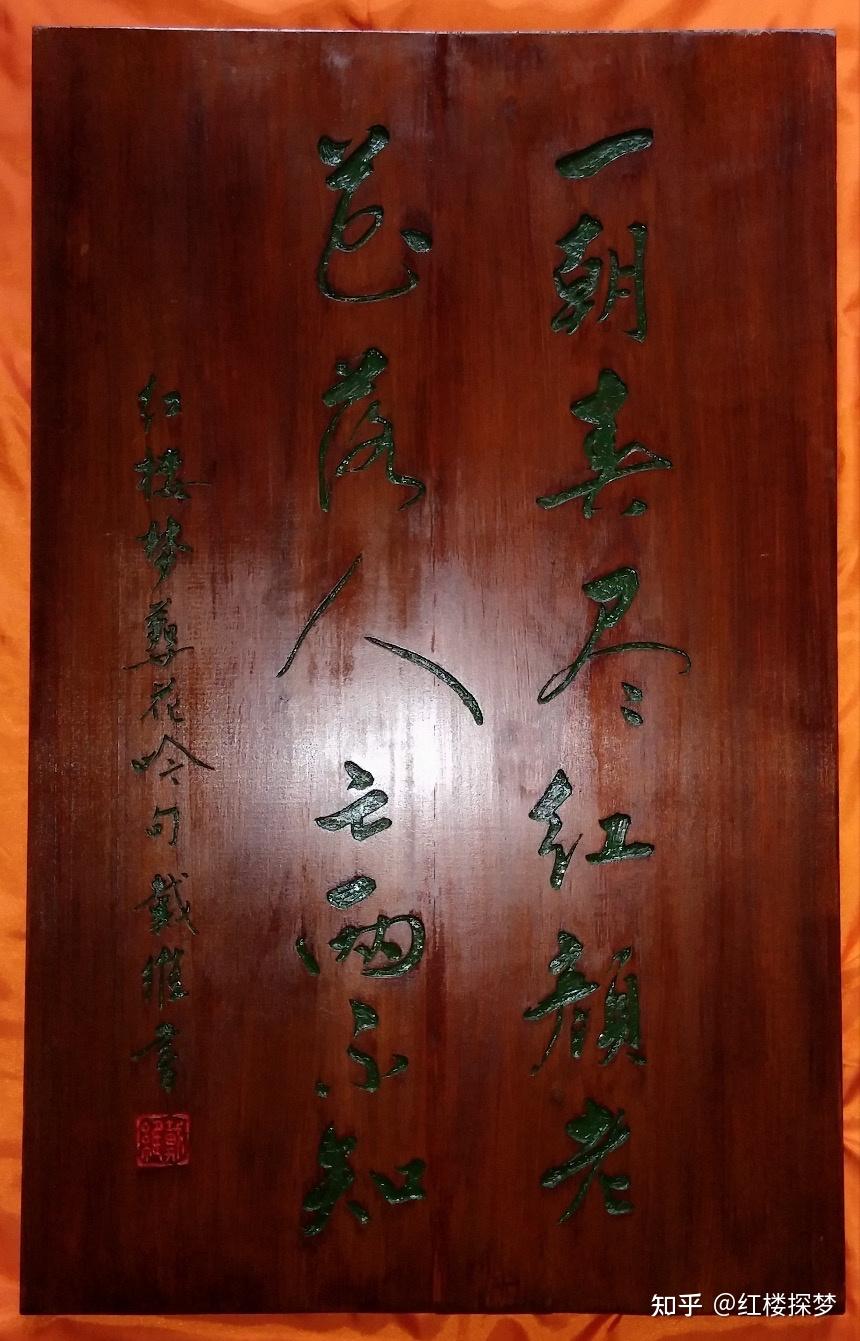 一朝春尽红颜老
花落人亡两不知
红楼梦葬花吟句戴维书
戴维
知乎 @红楼探梦